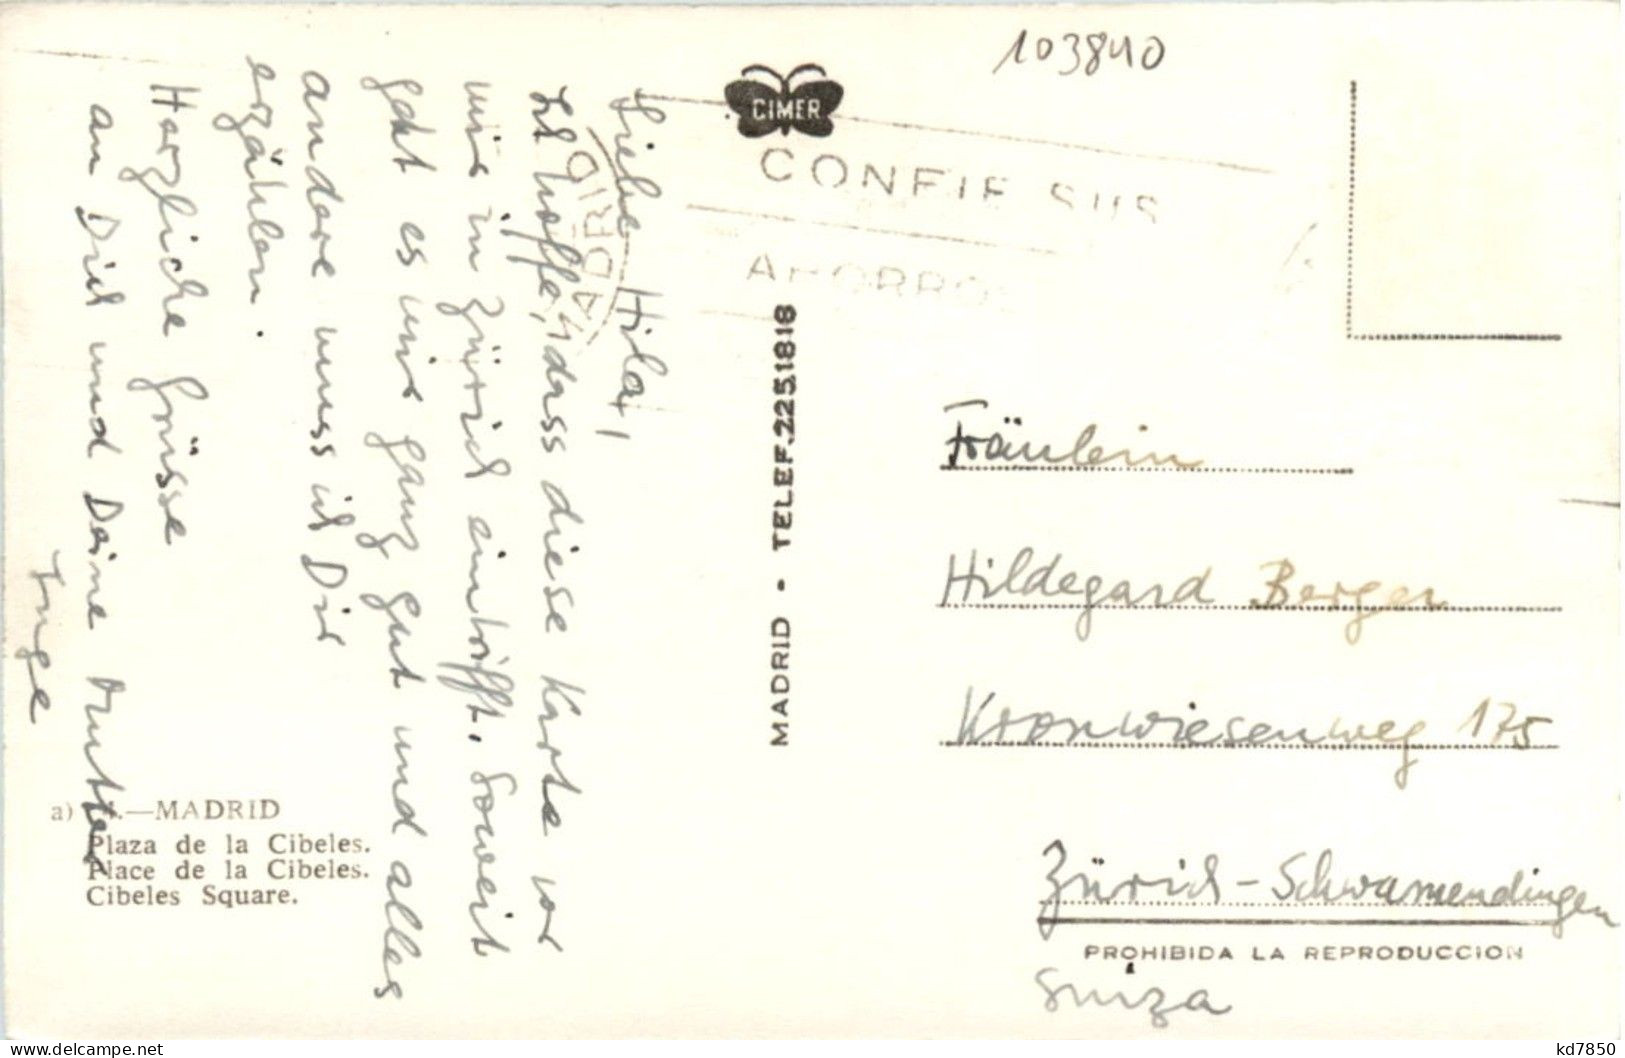 103840
CIMER
CONFIE SUS
AHORROS
MADRID
Liebe Hilda,
Ich hoffe, dass diese Karte vor
mir in Zürich eintrifft. Soweit
geht es mir ganz gut und alles
andere muss ich Dir
erzählen.
Herzliche Grüsse
an Dich und Deine Mutter
Inge
MADRID - TELEF. 2251818
Fräulein
Hildegard Berger
Kronwiesenweg 175
Zürich-Schwamendingen
PROHIBIDA LA REPRODUCCION
Suiza
a) —MADRID
Plaza de la Cibeles.
Place de la Cibeles.
Cibeles Square.
delcampe.net
kd7850